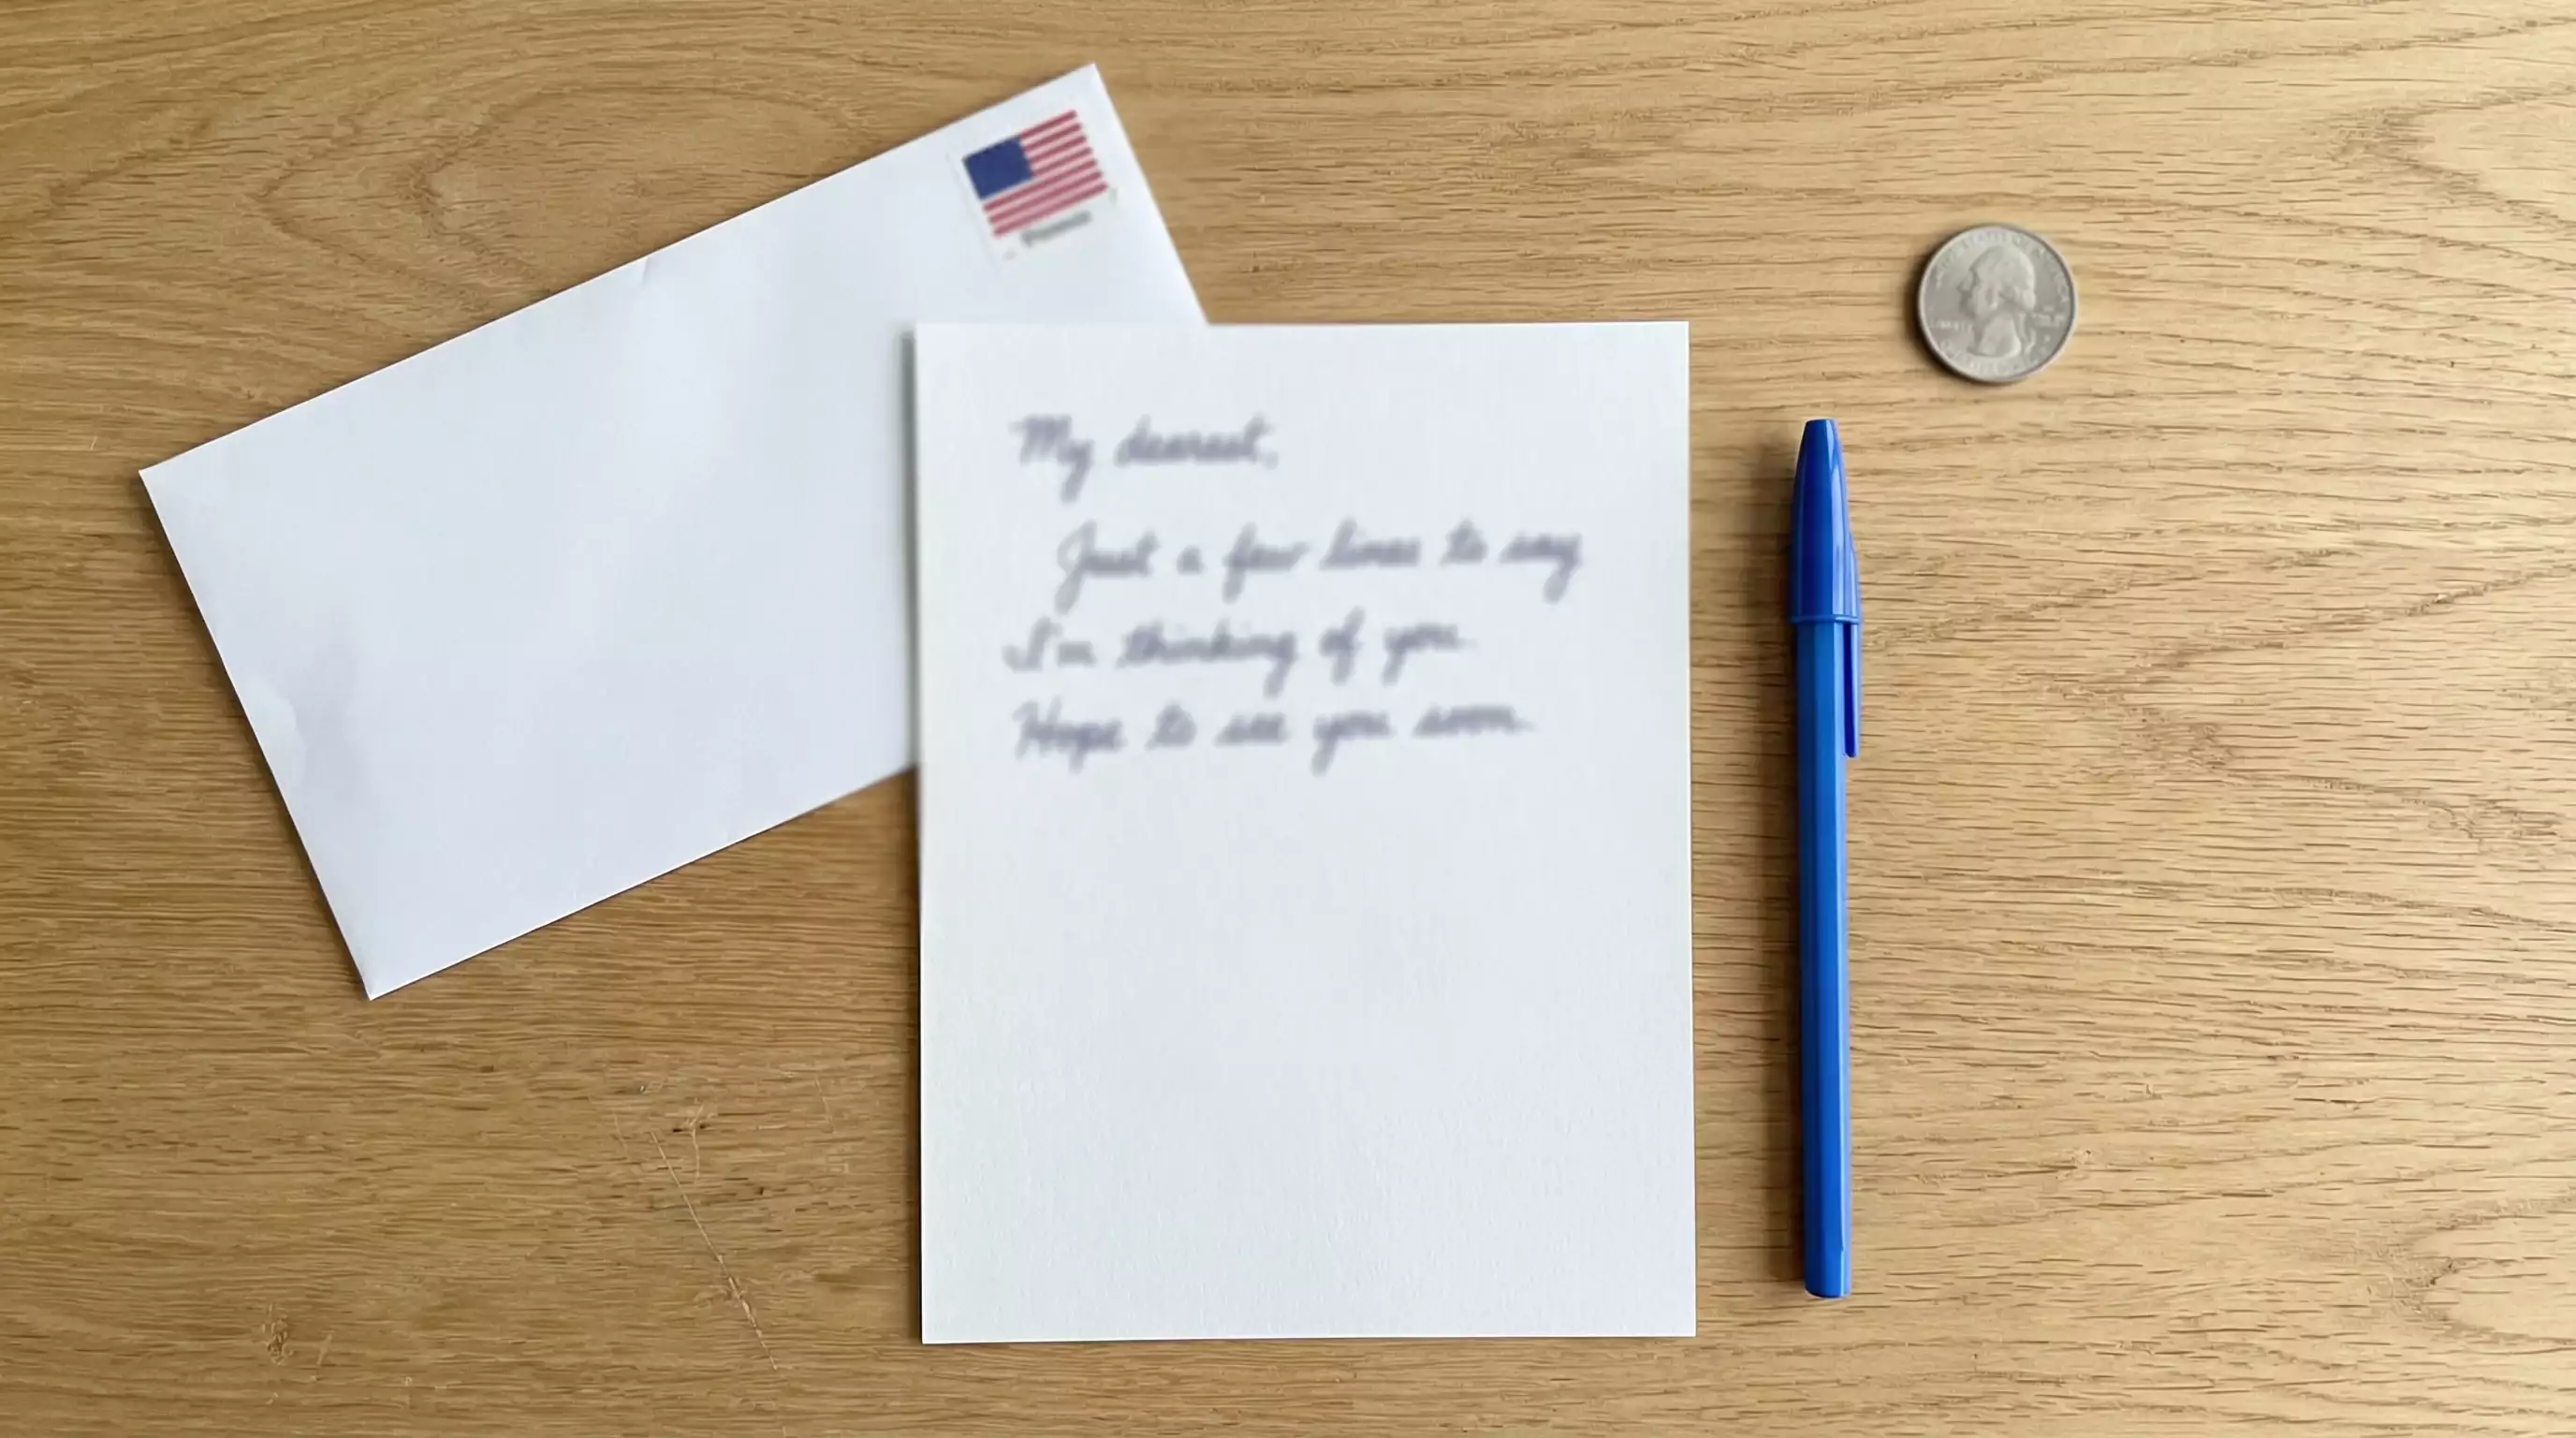 My dearest,
Just a few lines to say
I'm thinking of you.
Hope to see you soon.
LIBERTY